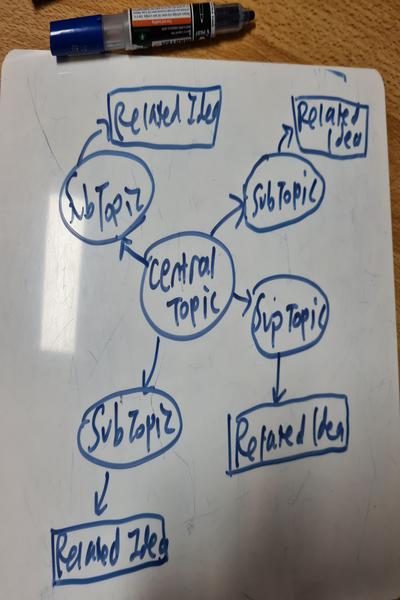 Related Idea
Related
Idea
SubTopic
SubTopic
Central
Topic
SupTopic
SubTopic
Related Idea
Related Idea